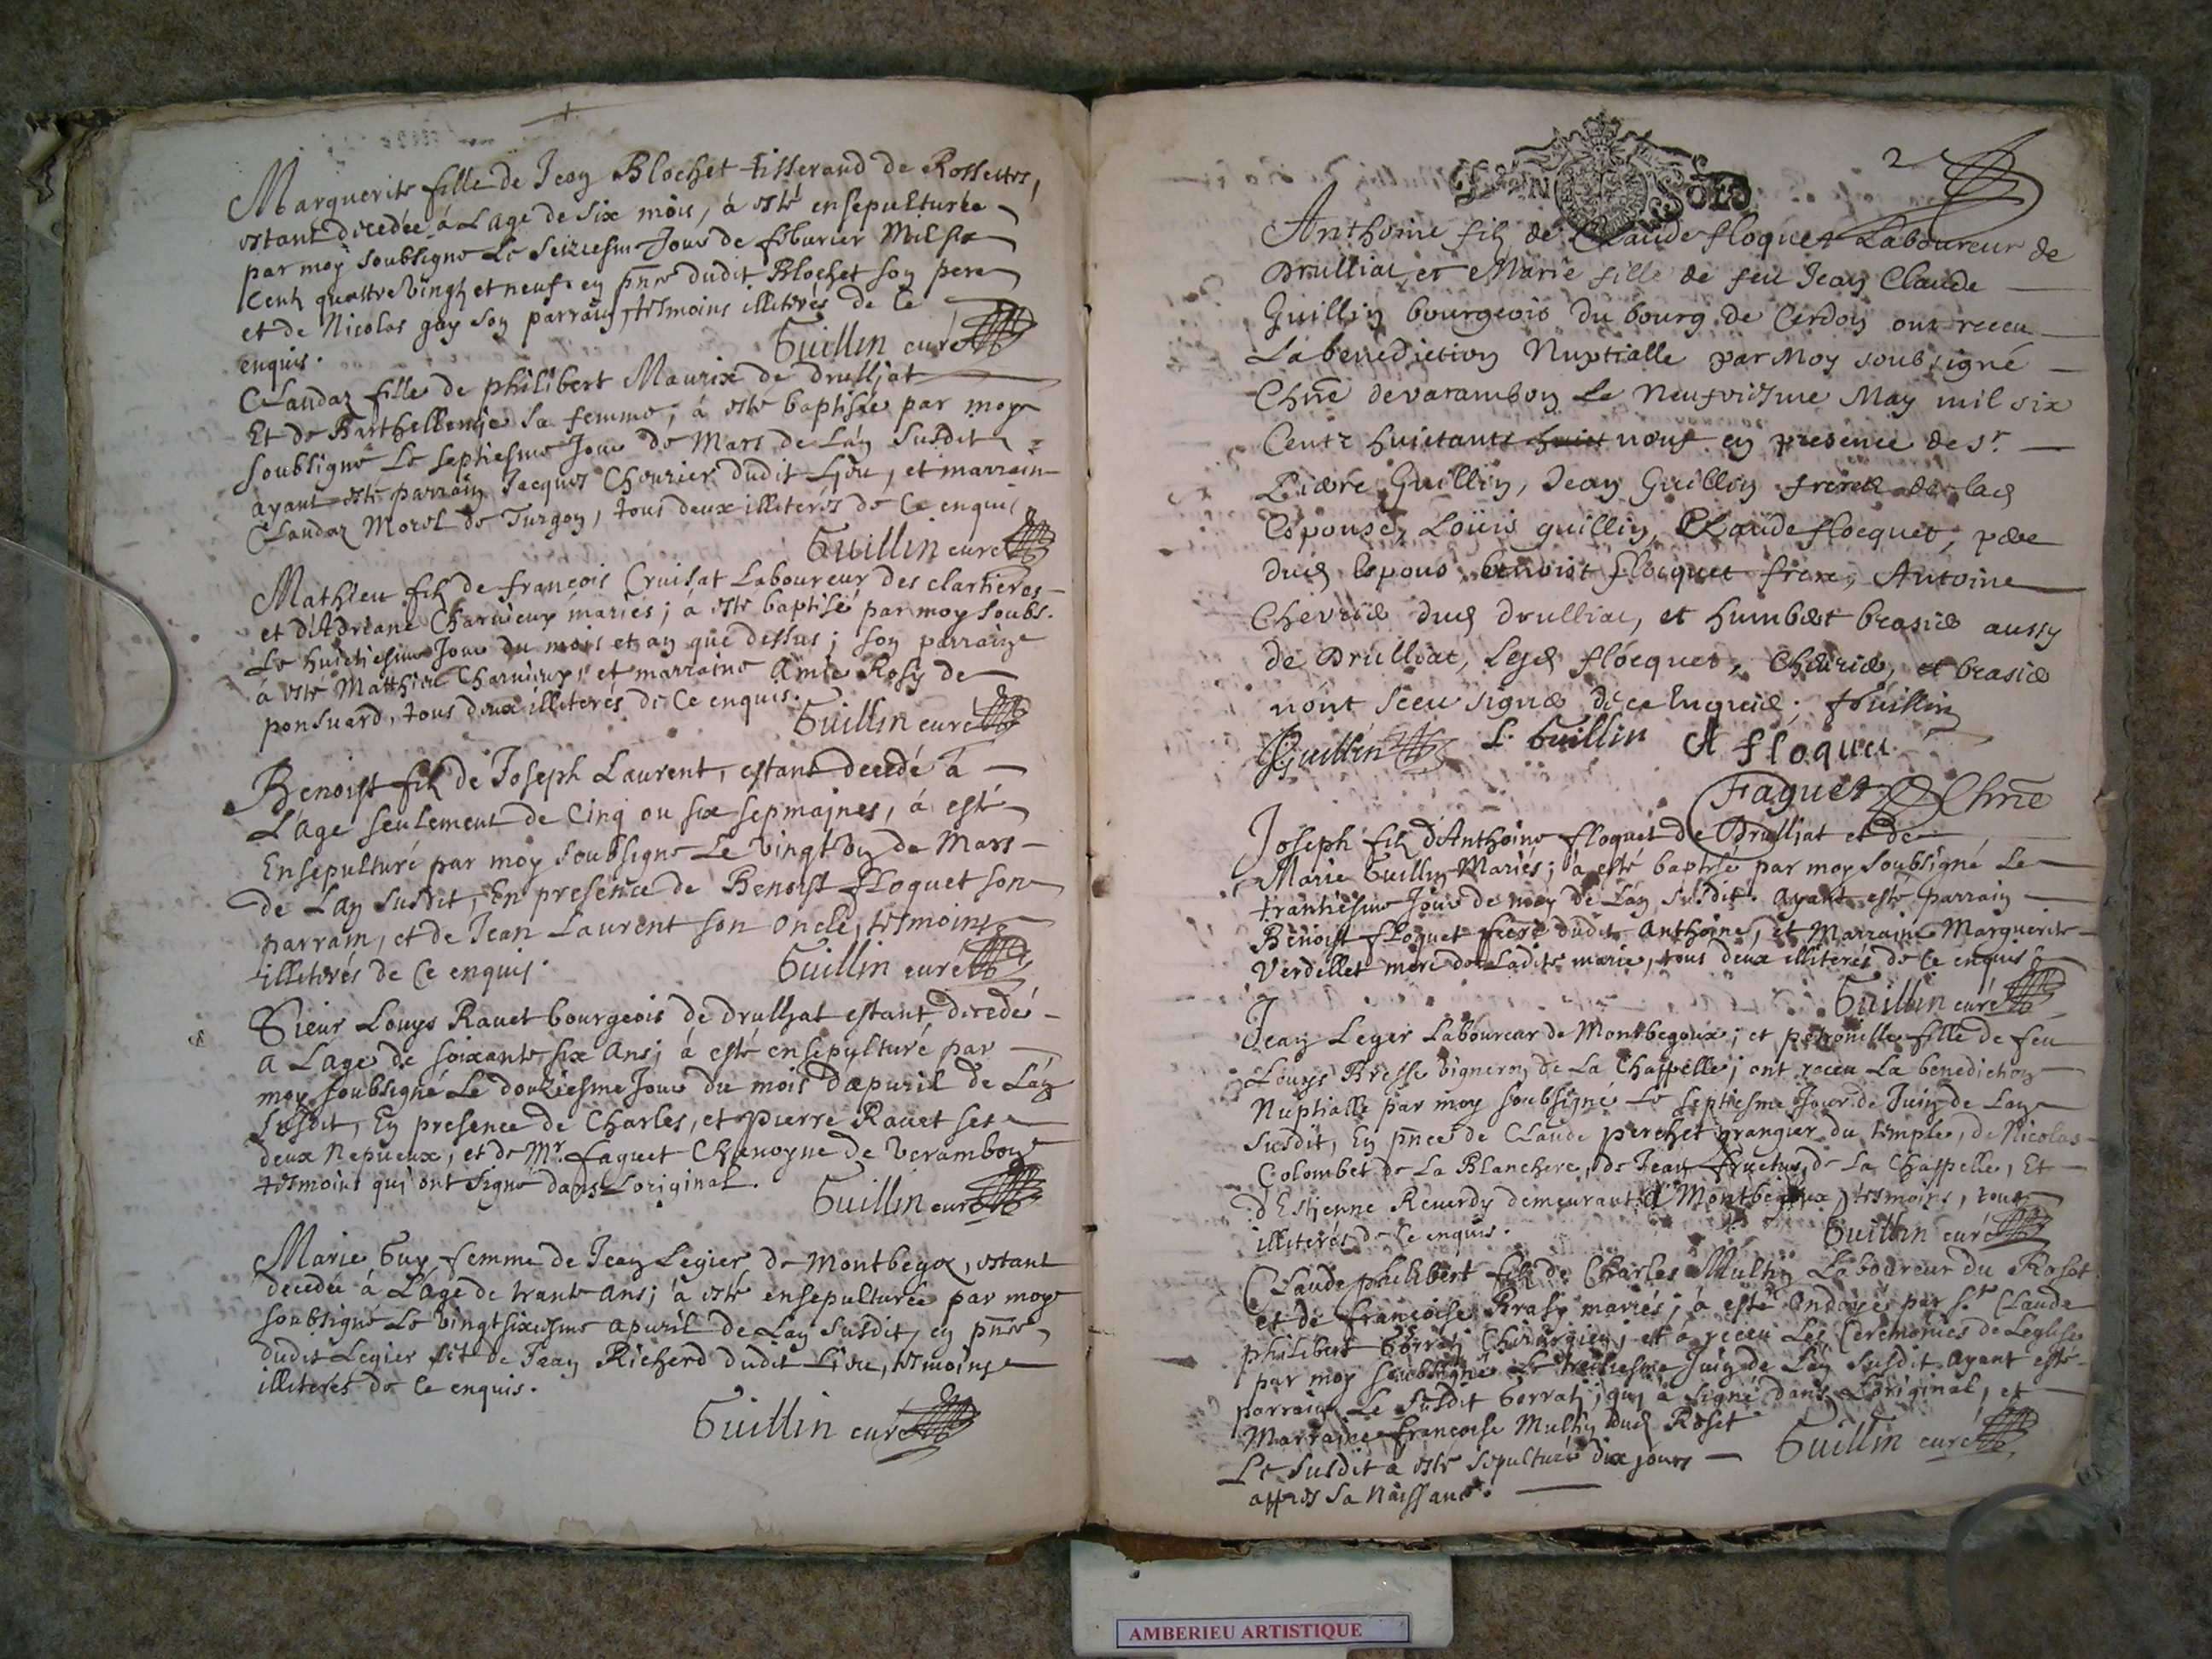 Marguerite fille de Jean Blochet tisserand de Rossettes,
estant decedée à L'age de six mois, à esté ensepulturée
par moy soubsigné Le seiziesme Jour de feburier Mil six
Cents quattre vingts et neuf. en pnce dudit Blochet son pere
et de Nicolas gay son parrain, tesmoins illiterés de ce
enquis. Guillin curé
Claudaz fille de philibert Maurix de drulliat
Et de Barthellemie sa femme, à esté baptisée par moy
soubsigné Le septiesme Jour de Mars de L'an susdit
ayant esté parrain Jacques Chourier dudit Lieu, et marraine
Claudaz Morel de Turgon, tous deux illiterés de ce enquis
Guillin curé
Mathieu fils de françois Cruisat Laboureur des clartieres
et d'Adriane Charnieux mariés; à esté baptisé par moy soubs.
Le huictiesme Jour du mois et an que dessus; son parrain
à esté Matthieu Charnieux, et marraine Amie Rosy de
ponsuard, tous deux illiterés de ce enquis.
Guillin curé
Benoist fils de Joseph Laurent, estant decedé à
L'age seulement de cinq ou six sepmaines, à esté
Ensepulturé par moy soubsigné Le vingt de Mars
de L'an susdit, En presence de Benoist floquet son
parrain, et de Jean Laurent son oncle, tesmoins
illiterés de ce enquis. Guillin curé
Sieur Louys Rauet bourgeois de drulliat estant decedé
a L'age de soixante six ans; à esté ensepulturé par
moy soubsigné Le douziesme Jour du mois d'apuril de L'an
susdit, En presence de Charles, et pierre Rauet ses
deux Nepueux, et de Mr. faguet Chanoyne de Verambon
tesmoins qui ont signé dans L'original.
Guillin curé
Marie Guy femme de Jean Legier de Montbegox, estant
decedée à L'age de trante ans; à esté ensepulturée par moy
soubsigné Le vingtsixiesme apuril de L'an susdit, en pnce
dudit Legier et de Jean Richerd dudit Lieu, tesmoins
illiterés de ce enquis.
Guillin curé
2
SOLS
Anthoine fils de Claude floquet Laboureur de
Drulliat et Marie fille de feu Jean Claude
Guillin bourgeois du bourg de Cerdon ont receu
La benediction Nuptialle par Moy soubsigné
Chne de varambon le Neufviesme May mil six
Centz huictante huict neuf en presence de sr.
Pierre Guillin, Jean Guillin freres de lad
Espouse, Loüis guillin, Claude flocquet, pere
dud Espous benoist flocquet frere, Antoine
Chevrie dud drulliat, et humbert brasie aussy
de Drulliat, Lesd flocquet, Cheurie, et brasie
n'ont sceu signé de ce enquis; Guillin
Guillin L. Guillin A floquet
Faguet Chne
Joseph fils d'Anthoine floquet de Drulliat et de
Marie Guillin Mariés; à esté baptisé par moy soubsigné Le
trantiesme Jour de may de L'an susdit. ayant esté parrain
Benoist floquet frere dudit Anthoine, et Marraine Marguerite
Verdellet mere de Ladite marie, tous deux illiterés de ce enquis
Guillin curé
Jean Leger Laboureur de Montbegoux; et petronille fille de feu
Louys Bresse vigneron de La Chappelle; ont receu La benediction
Nuptialle par moy soubsigné Le septiesme Jour de Juin de L'an
susdit, En pnce de Claude perchet grangier du temple, de Nicolas
Colombet de La Blanchere, de Jean fructus de La Chappelle, Et
d'Estienne Reuerdy demeurant à Montbegoux, tesmoins, tous
illiterés de ce enquis. Guillin curé
Claude philibert fils de Charles Multin Laboureur du Roset
et de françoise Brasy mariés; à esté Ondoyé par sr. Claude
philibert Gorrati Chirurgien; et à receu Les Ceremonies de L'eglise
par moy soubsigné Le treiziesme Juin de L'an susdit ayant esté
parrain Le susdit Gorrati; qui à signé dans L'original, et
Marraine françoise Multin dud Roset
Le susdit à esté sepulturé dix jours Guillin curé
apprès sa Naissance.
AMBERIEU ARTISTIQUE